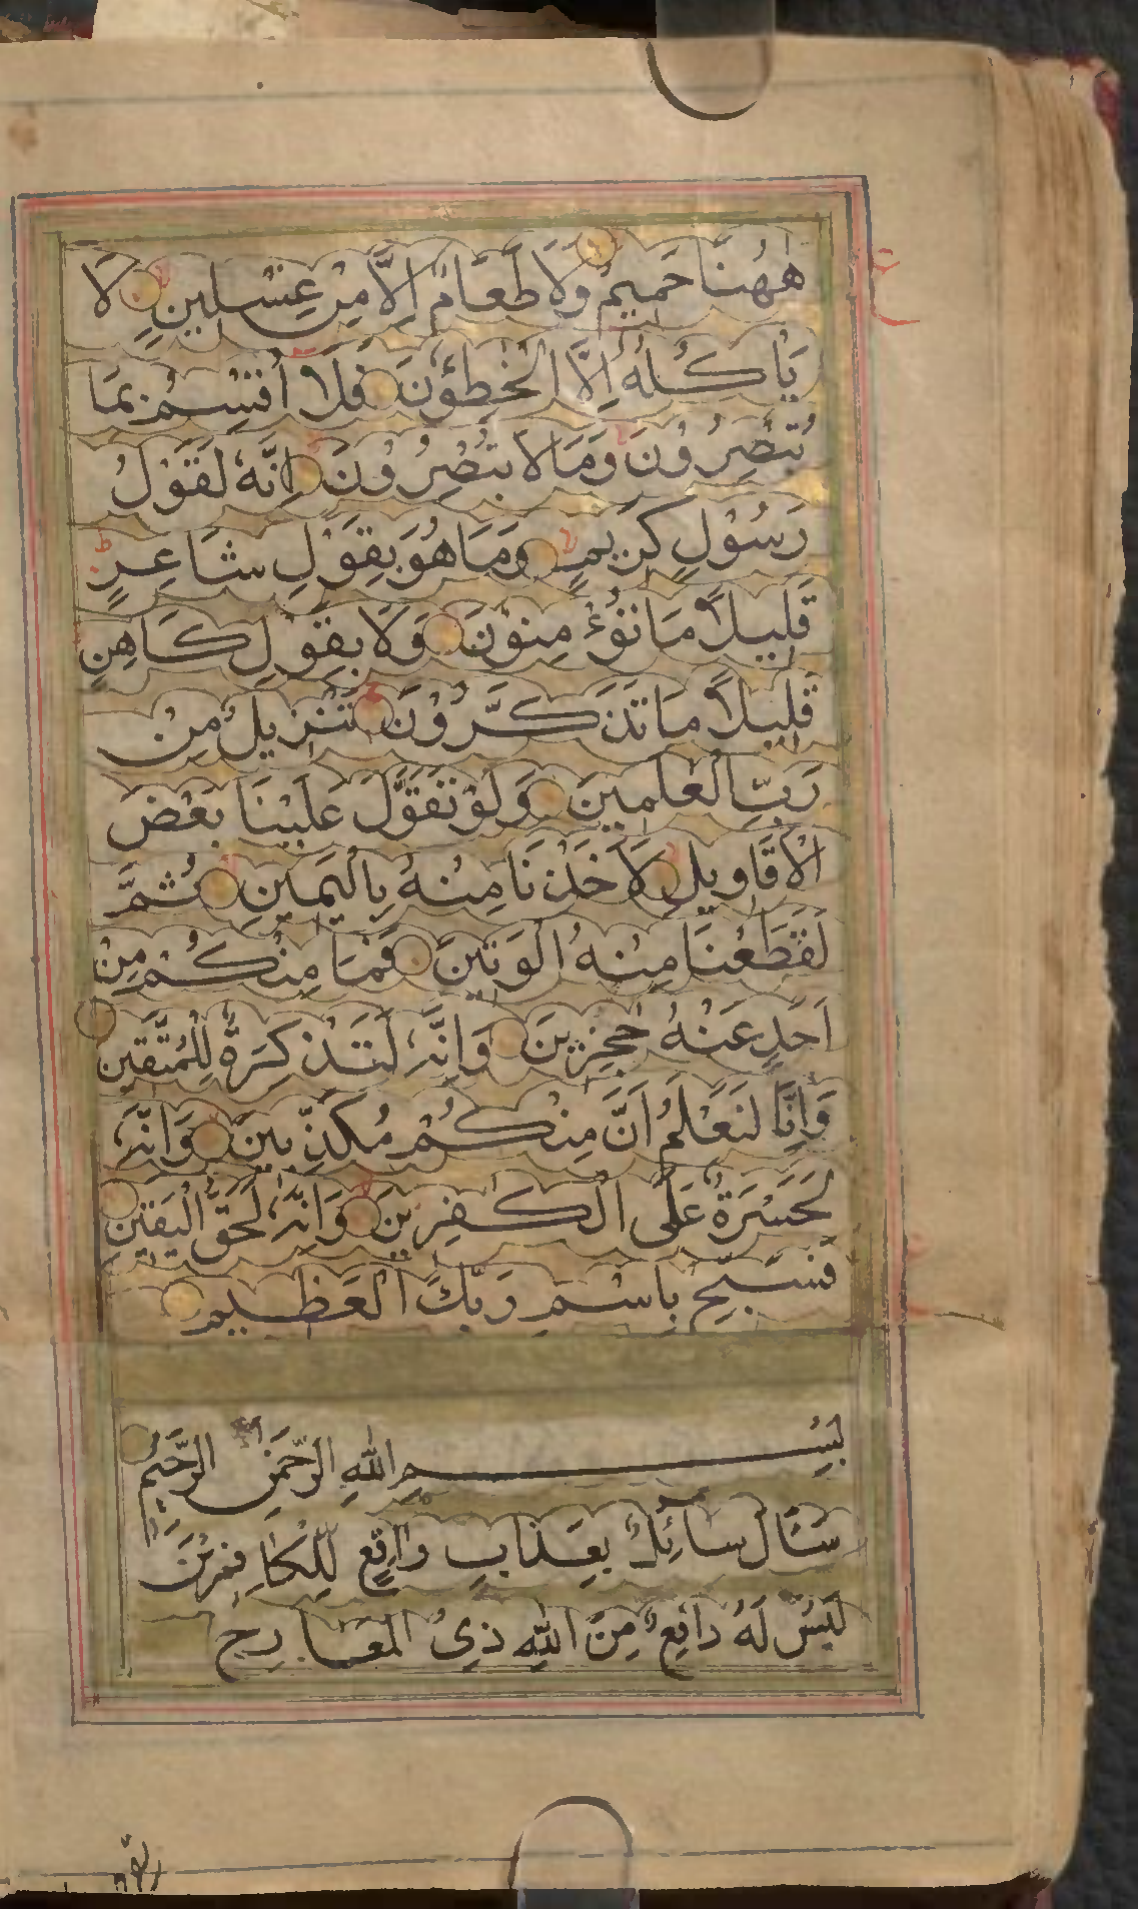 هٰهُنَا حَمِيمٌ وَلَا طَعَامٌ اِلَّا مِنْ غِسْلِينٍ لَا
يَاْكُلُهُ اِلَّا الْخٰطِؤُنَ فَلَا اُقْسِمُ بِمَا
تُبْصِرُوْنَ وَمَا لَا تُبْصِرُوْنَ اِنَّهٗ لَقَوْلُ
رَسُوْلٍ كَرِيمٍ وَمَا هُوَ بِقَوْلِ شَاعِرٍ
قَلِيلًا مَا تُؤْمِنُوْنَ وَلَا بِقَوْلِ كَاهِنٍ
قَلِيلًا مَا تَذَكَّرُوْنَ تَنْزِيلٌ مِنْ
رَبِّ الْعٰلَمِينَ وَلَوْ تَقَوَّلَ عَلَيْنَا بَعْضَ
الْاَقَاوِيلِ لَاَخَذْنَا مِنْهُ بِالْيَمِينِ ثُمَّ
لَقَطَعْنَا مِنْهُ الْوَتِينَ فَمَا مِنْكُمْ مِنْ
اَحَدٍ عَنْهُ حٰجِزِينَ وَاِنَّهٗ لَتَذْكِرَةٌ لِلْمُتَّقِينَ
وَاِنَّا لَنَعْلَمُ اَنَّ مِنْكُمْ مُكَذِّبِينَ وَاِنَّهٗ
لَحَسْرَةٌ عَلَى الْكٰفِرِينَ وَاِنَّهٗ لَحَقُّ الْيَقِينِ
فَسَبِّحْ بِاسْمِ رَبِّكَ الْعَظِيمِ
بِسْمِ اللّٰهِ الرَّحْمٰنِ الرَّحِيمِ
سَئَالَ سَائِلٌ بِعَذَابٍ وَاقِعٍ لِلْكَافِرِينَ
لَيْسَ لَهُ دَافِعٌ مِنَ اللّٰهِ ذِى الْمَعَارِجِ